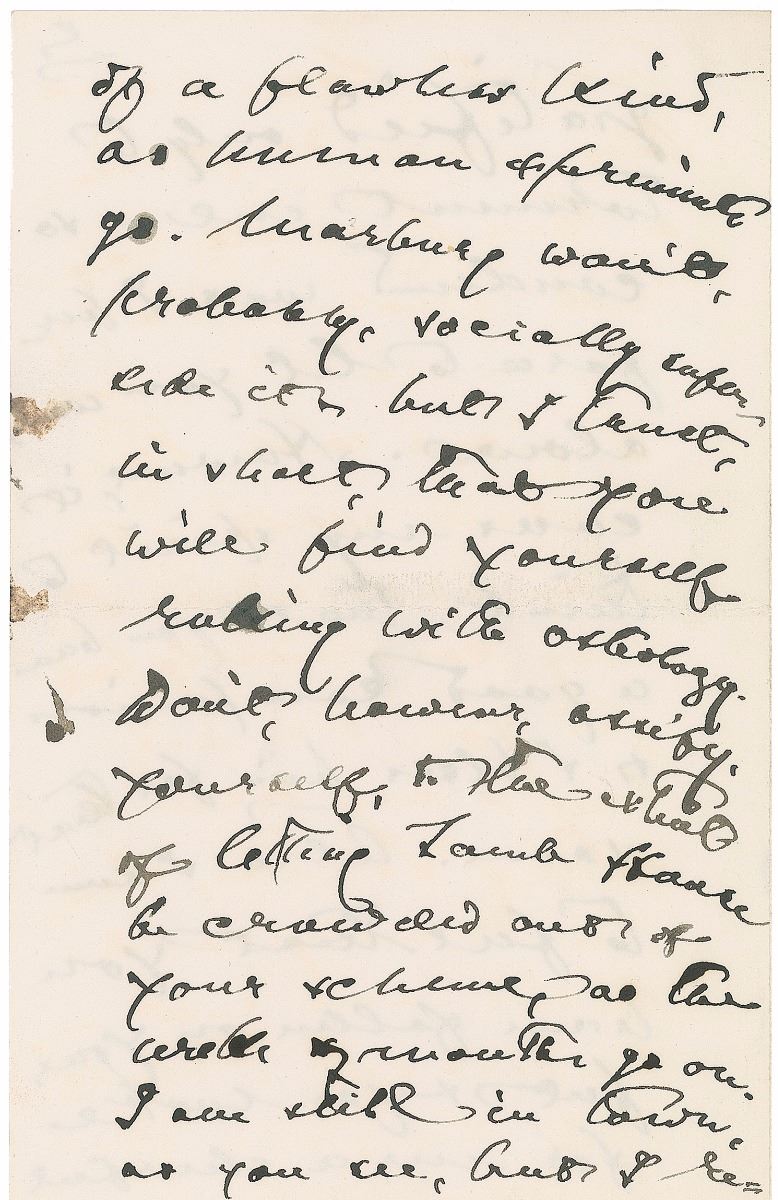 of a flawless kind,
as human experiments
go. Marburg won't,
probably, socially super-
sede it, but I trust,
in short, that you
will find yourself
rubbing with osteology.
Don't, however, ossify
yourself, to the extent
of letting Lamb House
be crowded out of
your scheme, as the
weeks & months go on.
I am still in town,
as you see, but I re=